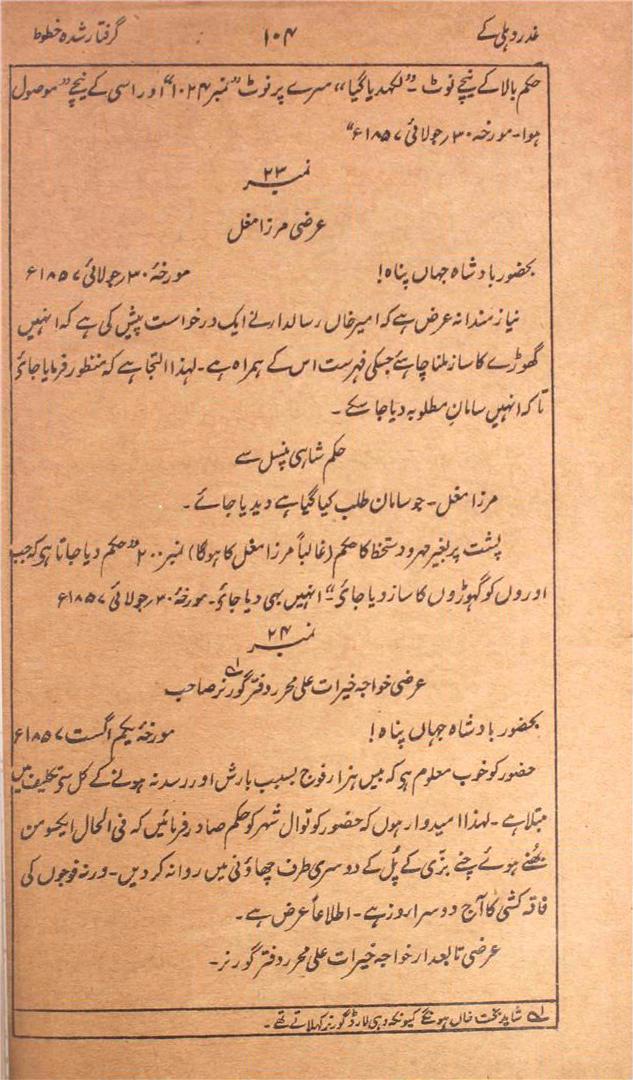 غدر دہلی کے ۱۰۴ گرفتار شدہ خطوط
حکم بالا کے نیچے نوٹ ۔ "لکھدیا گیا" سرے پر نوٹ "نمبر ۱۰۲۴" اور اسی کے نیچے "موصول
ہوا ۔ مورخہ ۳۰ جولائی ۱۸۵۷ء"
نمبر ۲۳
عرضی مرزا مغل
بحضور بادشاہ جہاں پناہ! مورخۂ ۳۰ جولائی ۱۸۵۷ء
نیازمندانہ عرض ہے کہ امیر خاں رسالدار نے ایک درخواست پیش کی ہے کہ انہیں
گھوڑے کا ساز ملنا چاہئے جسکی فہرست اس کے ہمراہ ہے ۔ لہذا التجا ہے کہ منظور فرمایا جائے
تاکہ انہیں سامان مطلوبہ دیا جا سکے ۔
حکم شاہی پنسل سے
مرزا مغل ۔ جو سامان طلب کیا گیا ہے دیدیا جائے ۔
پشت پر بغیر مہر و دستخط کا حکم (غالباً مرزا مغل کا ہوگا) نمبر ۲۰۰ "حکم دیا جاتا ہو کہ جب
اوروں کو گہوڑوں کا ساز دیا جائے ۔" انہیں بھی دیا جائے ۔ مورخۂ ۳۰ جولائی ۱۸۵۷ء
نمبر ۲۴
عرضی خواجہ خیرات علی محرر دفتر گورنر صاحب
بحضور بادشاہ جہاں پناہ! مورخۂ یکم اگست ۱۸۵۷ء
حضور کو خوب معلوم ہی کہ بیس ہزار فوج بسبب بارش اور رسد نہ ہونے کے کل سے تکلیف میں
مبتلا ہے ۔ لہذا امیدوار ہوں کہ حضور کوتوال شہر کو حکم صادر فرمائیں کہ فی الحال ایکسو من
بھنے ہوئے چنے بڑی کے پُل کے دوسری طرف چھاؤنی میں روانہ کر دیں ۔ ورنہ فوجوں کی
فاقہ کشی کا آج دوسرا روز ہے ۔ اطلاعاً عرض ہے ۔
عرضی تابعدار خواجہ خیرات علی محرر دفتر گورنر ۔
لہ شاید بخت خاں ہونگے کیونکہ وہی لارڈ گورنر کہلاتے تھے ۔